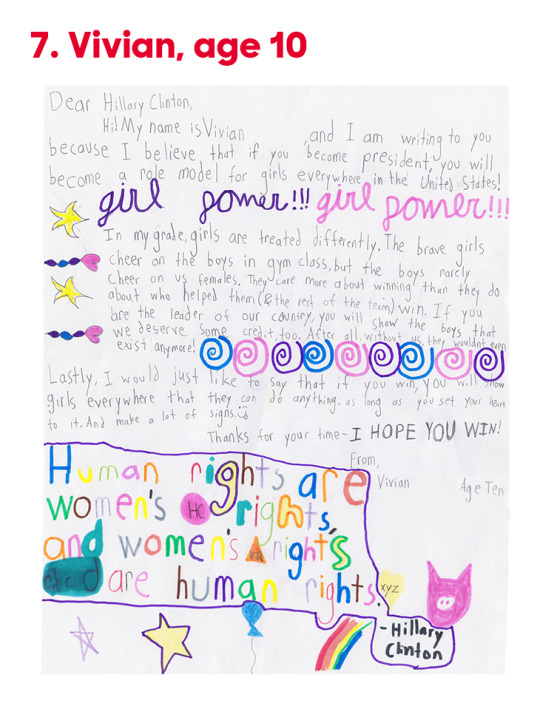 7. Vivian, age 10
Dear Hillary Clinton,
Hi! My name is Vivian and I am writing to you
because I believe that if you become president, you will
become a role model for girls everywhere in the United States!
girl power!!! girl power!!!
In my grade, girls are treated differently. The brave girls
cheer on the boys in gym class, but the boys rarely
cheer on us females. They care more about winning than they do
about who helped them (& the rest of the team) win. If you
are the leader of our country, you will show the boys that
we deserve some credit, too. After all, without us, they wouldn't even
exist anymore!
Lastly, I would just like to say that if you win, you will show
girls everywhere that they can do anything, as long as you set your heart
to it. And make a lot of signs.
Thanks for your time-I HOPE YOU WIN!
From,
Vivian Age Ten
Human rights are
women's HC rights,
and women's rights
abcd are human rights.
xyz
-Hillary
Clinton